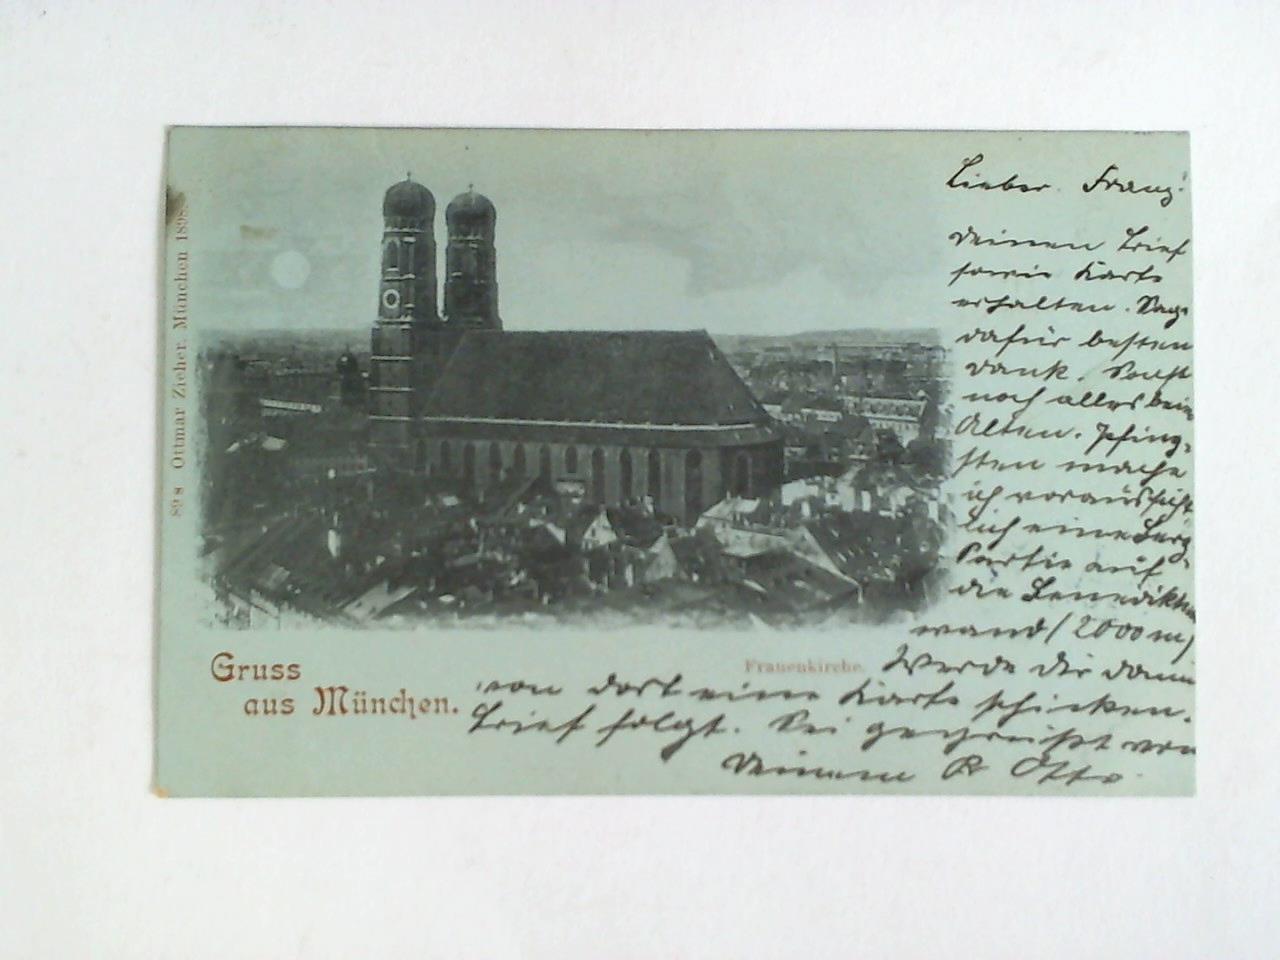 89 s Ottmar Zieher, München 1898.
Lieber Franz!
Deinen Brief
sowie Karte
erhalten. Sage
dafür besten
Dank. Sonst
noch alles beim
Alten. Pfing-
sten mache
ich voraussicht
lich eine Berg-
Partie auf
die Benedikten
wand (2000 m)
Frauenkirche.
Werde dir dann
von dort eine Karte schicken.
Gruss
aus München.
Brief folgt. Sei gegrüßt von
Deinem R Otto